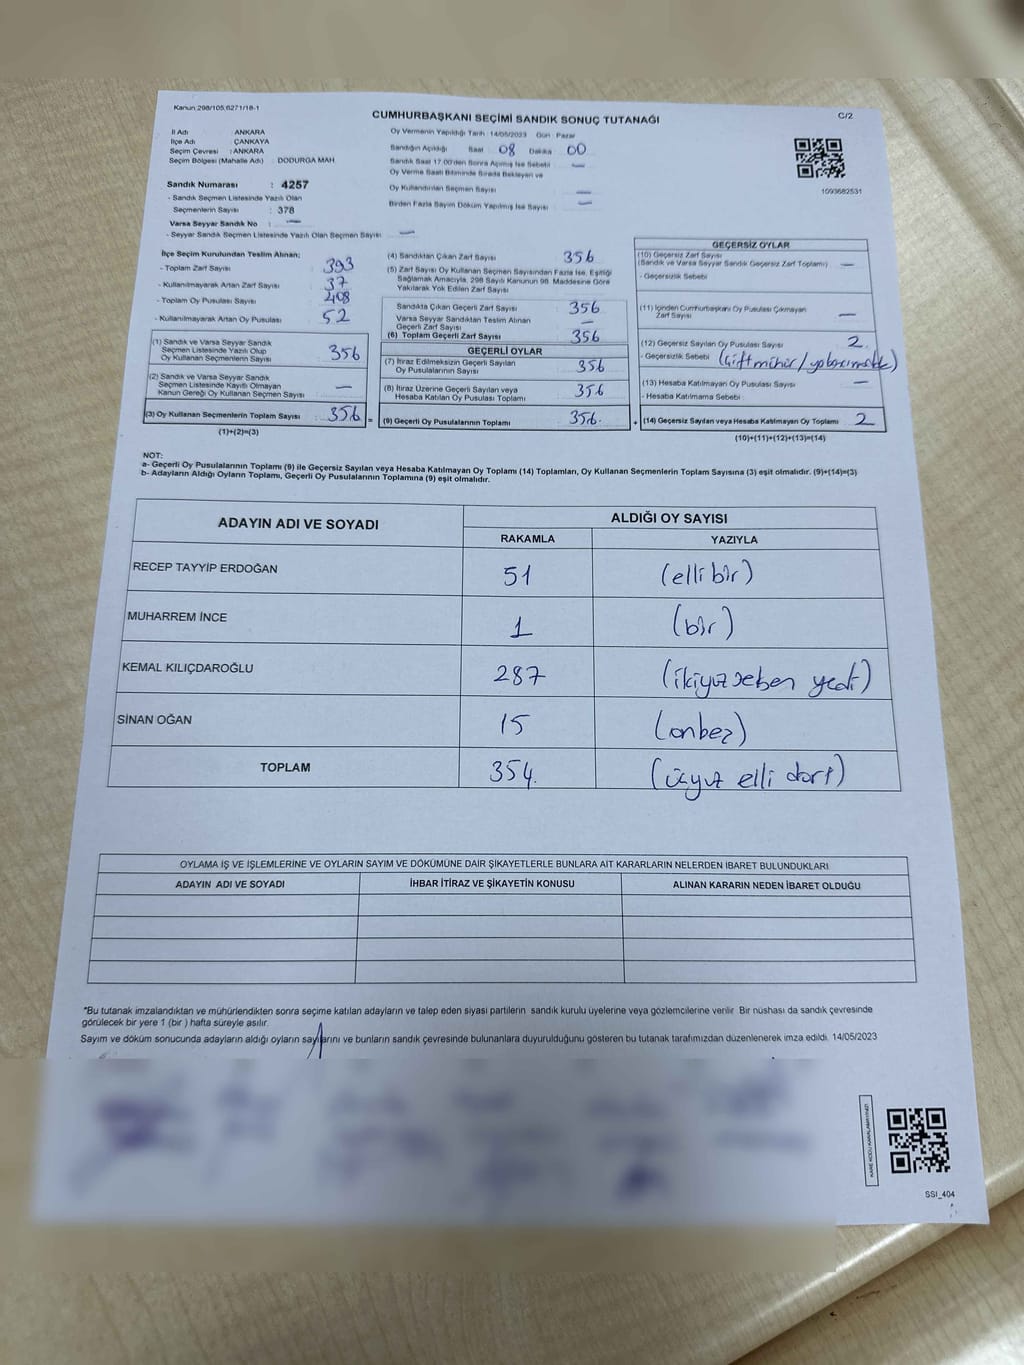 Kanun:298/105,6271/18-1
CUMHURBAŞKANI SEÇİMİ SANDIK SONUÇ TUTANAĞI
C/2
İl Adı : ANKARA
İlçe Adı : ÇANKAYA
Seçim Çevresi : ANKARA
Seçim Bölgesi (Mahalle Adı) : DODURGA MAH.
Oy Vermenin Yapıldığı Tarih : 14/05/2023 Gün : Pazar
Sandığın Açıldığı Saat 08 Dakika 00
Sandık Saat 17:00'den Sonra Açılmış İse Sebebi —
Oy Verme Saati Bitiminde Sırada Bekleyen ve
Oy Kullandırılan Seçmen Sayısı —
Birden Fazla Sayım Döküm Yapılmış İse Sayısı —
1093682531
Sandık Numarası : 4257
- Sandık Seçmen Listesinde Yazılı Olan
Seçmenlerin Sayısı : 378
Varsa Seyyar Sandık No : —
- Seyyar Sandık Seçmen Listesinde Yazılı Olan Seçmen Sayısı —
İlçe Seçim Kurulundan Teslim Alınan:
- Toplam Zarf Sayısı 393
- Kullanılmayarak Artan Zarf Sayısı 37
- Toplam Oy Pusulası Sayısı 408
- Kullanılmayarak Artan Oy Pusulası 52
(1) Sandık ve Varsa Seyyar Sandık
Seçmen Listesinde Yazılı Olup
Oy Kullanan Seçmenlerin Sayısı 356
(2) Sandık ve Varsa Seyyar Sandık
Seçmen Listesinde Kayıtlı Olmayan
Kanun Gereği Oy Kullanan Seçmen Sayısı —
(3) Oy Kullanan Seçmenlerin Toplam Sayısı 356
(1)+(2)=(3)
(4) Sandıktan Çıkan Zarf Sayısı 356
(5) Zarf Sayısı Oy Kullanan Seçmen Sayısından Fazla İse, Eşitliği
Sağlamak Amacıyla, 298 Sayılı Kanunun 98. Maddesine Göre
Yakılarak Yok Edilen Zarf Sayısı
Sandıkta Çıkan Geçerli Zarf Sayısı 356
Varsa Seyyar Sandıktan Teslim Alınan
Geçerli Zarf Sayısı —
(6) Toplam Geçerli Zarf Sayısı 356
GEÇERLİ OYLAR
(7) İtiraz Edilmeksizin Geçerli Sayılan
Oy Pusulalarının Sayısı 356
(8) İtiraz Üzerine Geçerli Sayılan veya
Hesaba Katılan Oy Pusulası Toplamı 356
= (9) Geçerli Oy Pusulalarının Toplamı 356.
GEÇERSİZ OYLAR
(10) Geçersiz Zarf Sayısı
(Sandık ve Varsa Seyyar Sandık Geçersiz Zarf Toplamı) —
- Geçersizlik Sebebi
(11) İçinden Cumhurbaşkanı Oy Pusulası Çıkmayan
Zarf Sayısı —
(12) Geçersiz Sayılan Oy Pusulası Sayısı 2.
- Geçersizlik Sebebi (çift mühür /
(13) Hesaba Katılmayan Oy Pusulası Sayısı —
- Hesaba Katılmama Sebebi
+ (14) Geçersiz Sayılan veya Hesaba Katılmayan Oy Toplamı 2
(10)+(11)+(12)+(13)=(14)
NOT:
a- Geçerli Oy Pusulalarının Toplamı (9) ile Geçersiz Sayılan veya Hesaba Katılmayan Oy Toplamı (14) Toplamları, Oy Kullanan Seçmenlerin Toplam Sayısına (3) eşit olmalıdır. (9)+(14)=(3)
b- Adayların Aldığı Oyların Toplamı, Geçerli Oy Pusulalarının Toplamına (9) eşit olmalıdır.
ADAYIN ADI VE SOYADI ALDIĞI OY SAYISI
RAKAMLA YAZIYLA
RECEP TAYYİP ERDOĞAN 51 (elli bir)
MUHARREM İNCE 1 (bir)
KEMAL KILIÇDAROĞLU 287 (ikiyüz seksen yedi)
SİNAN OĞAN 15 (onbeş)
TOPLAM 354. (üçyüz elli dört)
OYLAMA İŞ VE İŞLEMLERİNE VE OYLARIN SAYIM VE DÖKÜMÜNE DAİR ŞİKAYETLERLE BUNLARA AİT KARARLARIN NELERDEN İBARET BULUNDUKLARI
ADAYIN ADI VE SOYADI İHBAR İTİRAZ VE ŞİKAYETİN KONUSU ALINAN KARARIN NEDEN İBARET OLDUĞU
*Bu tutanak imzalandıktan ve mühürlendikten sonra seçime katılan adayların ve talep eden siyasi partilerin sandık kurulu üyelerine veya gözlemcilerine verilir. Bir nüshası da sandık çevresinde
görülecek bir yere 1 (bir ) hafta süreyle asılır.
Sayım ve döküm sonucunda adayların aldığı oyların sayılarını ve bunların sandık çevresinde bulunanlara duyurulduğunu gösteren bu tutanak tarafımızdan düzenlenerek imza edildi. 14/05/2023
KARE KODU KARALAMAYINIZ!
SSI_404